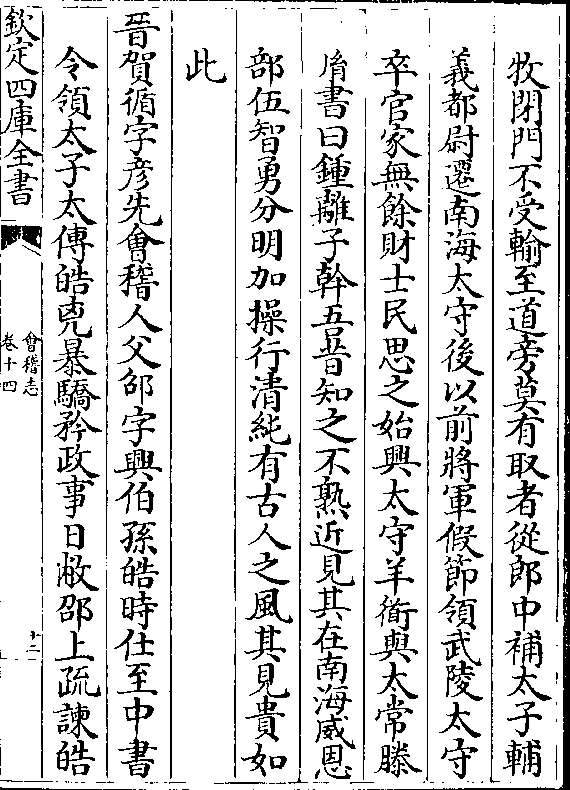 牧閉門不受輸至道旁莫有取者從郎中補太子輔
義都尉遷南海太守後以前將軍假節領武陵太守
卒官家無餘財士民思之始興太守羊衜與太常滕
𦙍書曰鍾離子幹吾昔知之不熟近見其在南海威恩
部伍智勇分明加操行清純有古人之風其見貴如
此
晉賀循字彦先㑹稽人父邵字興伯孫皓時仕至中書
令領太子太傅皓兇暴驕矜政事日敝邵上疏諫皓
欽定四庫全書
會稽志
卷十四
十二